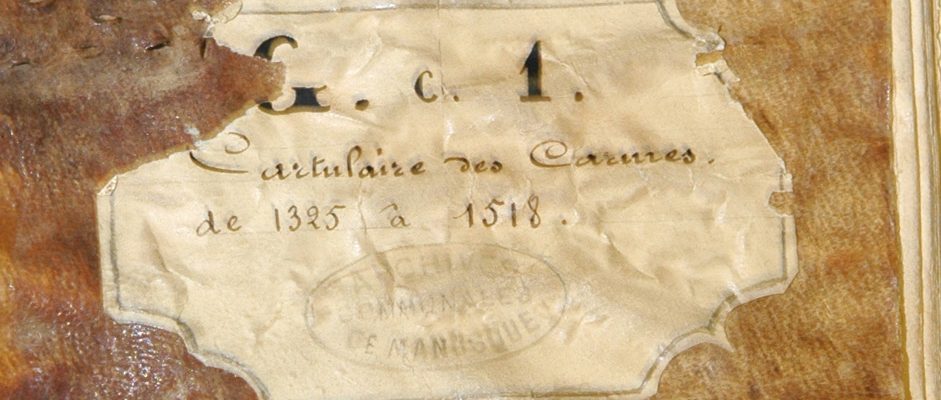 G. c. 1.
Cartulaire des Carmes.
de 1325 à 1518.
ARCHIVES
COMMUNALES
DE MANOSQUE